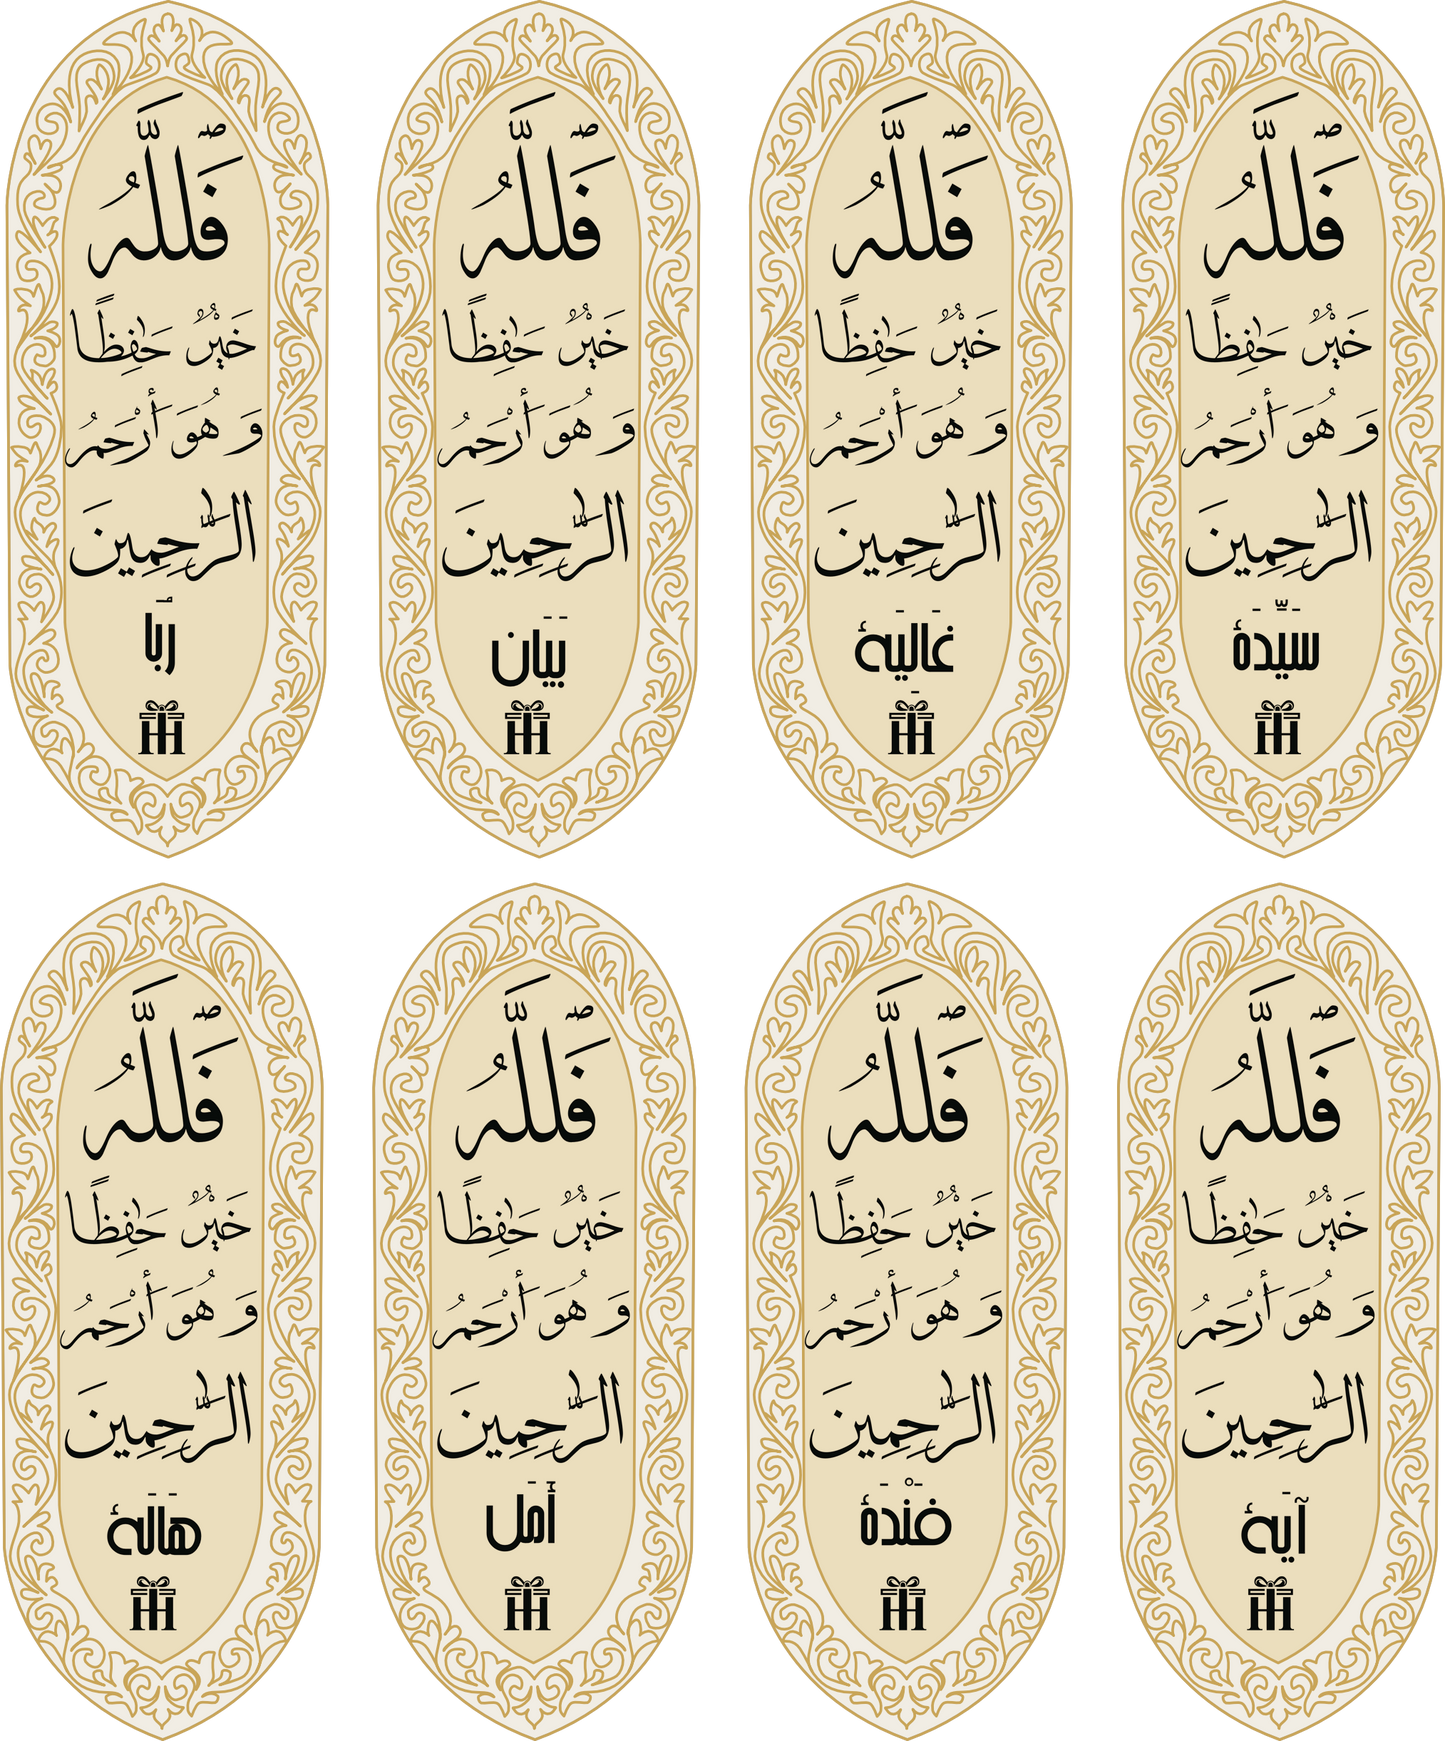 فَٱللَّهُ
خَيْرٌ حَٰفِظًا
وَ هُوَ أَرْحَمُ
الرَّٰحِمِينَ
سَيَّدَة
فَٱللَّهُ
خَيْرٌ حَٰفِظًا
وَ هُوَ أَرْحَمُ
الرَّٰحِمِينَ
غَالِيَة
فَٱللَّهُ
خَيْرٌ حَٰفِظًا
وَ هُوَ أَرْحَمُ
الرَّٰحِمِينَ
بَيَان
فَٱللَّهُ
خَيْرٌ حَٰفِظًا
وَ هُوَ أَرْحَمُ
الرَّٰحِمِينَ
رُبَا
فَٱللَّهُ
خَيْرٌ حَٰفِظًا
وَ هُوَ أَرْحَمُ
الرَّٰحِمِينَ
آيَة
فَٱللَّهُ
خَيْرٌ حَٰفِظًا
وَ هُوَ أَرْحَمُ
الرَّٰحِمِينَ
فَنْدَة
فَٱللَّهُ
خَيْرٌ حَٰفِظًا
وَ هُوَ أَرْحَمُ
الرَّٰحِمِينَ
أَمَل
فَٱللَّهُ
خَيْرٌ حَٰفِظًا
وَ هُوَ أَرْحَمُ
الرَّٰحِمِينَ
هَالَة